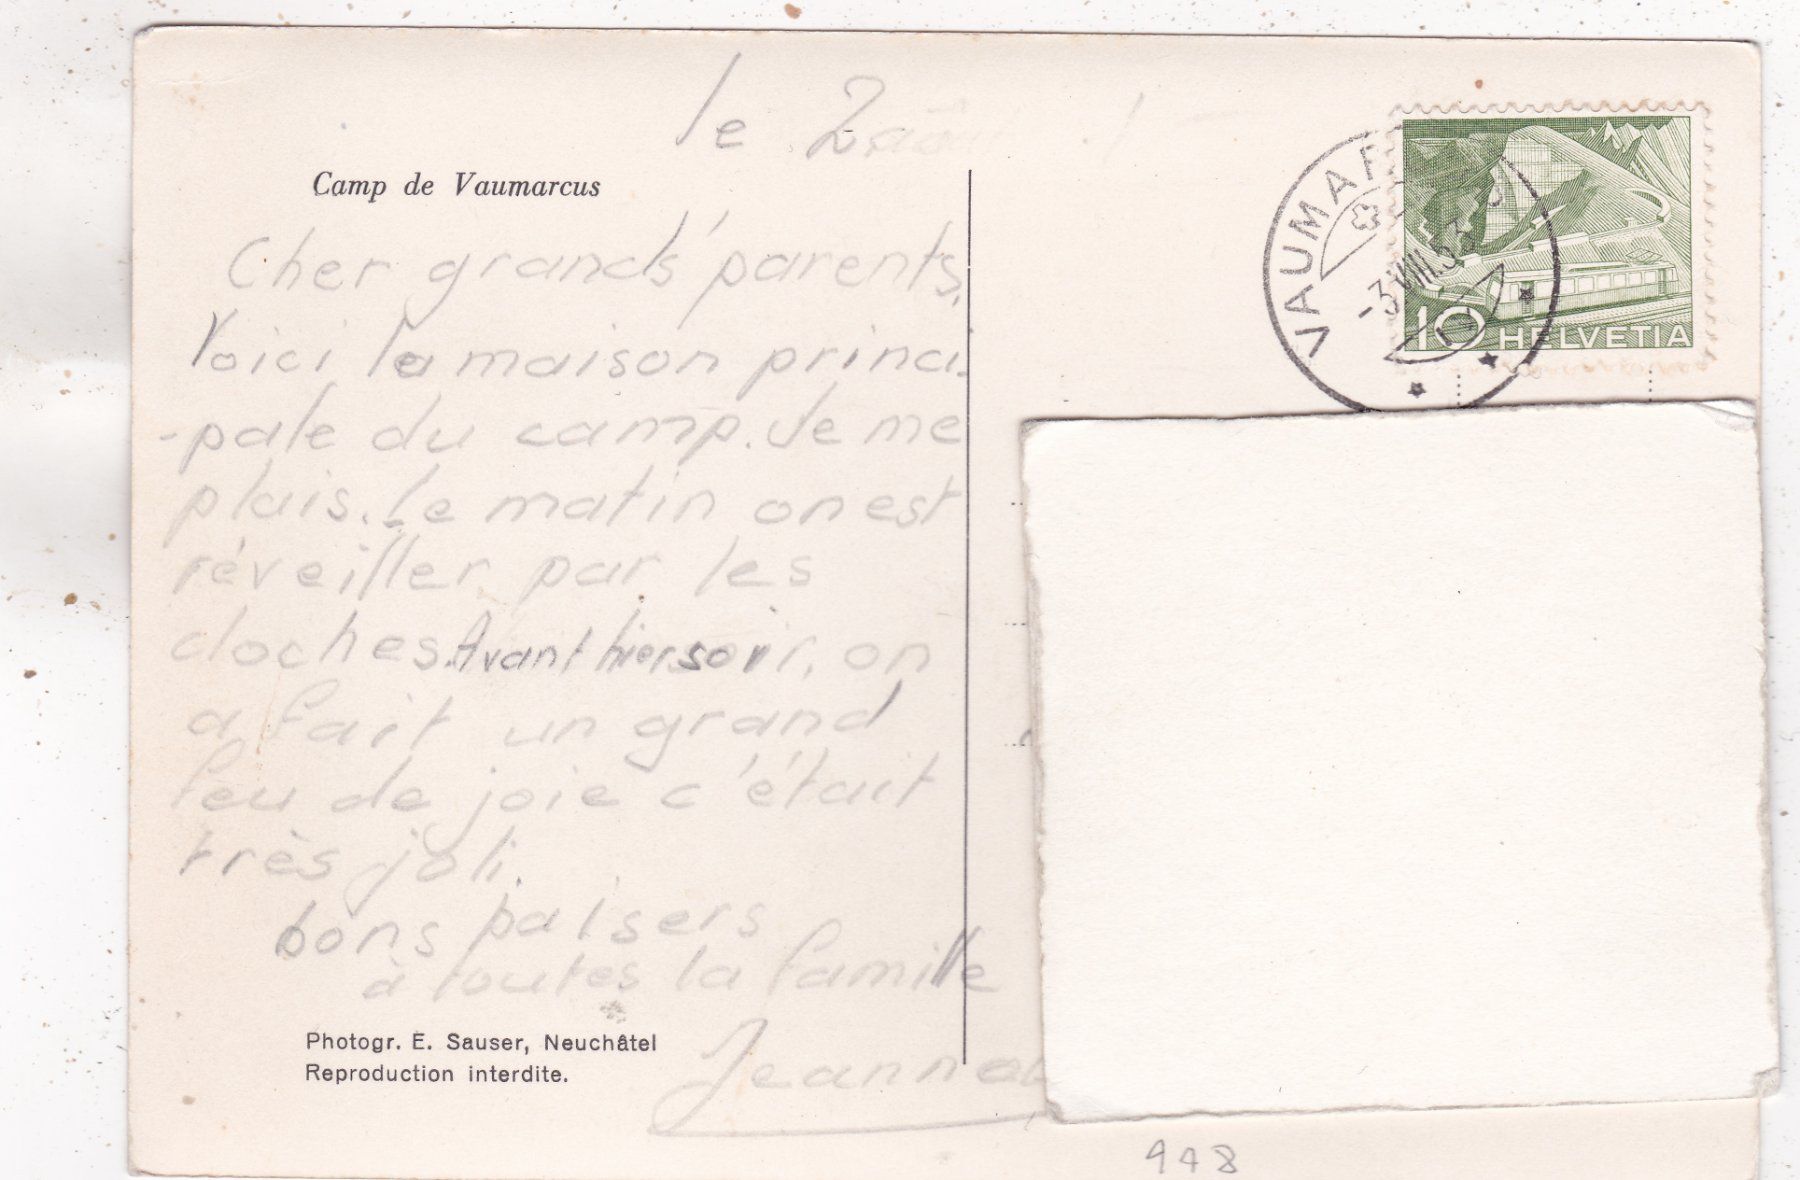 le 2
Camp de Vaumarcus
Cher grands'parents,
Voici la maison princi-
-pale du camp. Je me
plais. Le matin on est
réveiller par les
cloches. Avant hier soir, on
a fait un grand
feu de joie c'était
très joli.
bons baisers
à toutes la famille
Jeanna
Photogr. E. Sauser, Neuchâtel
Reproduction interdite.
VAUMAR
-3.VIII.53
10 HELVETIA
948